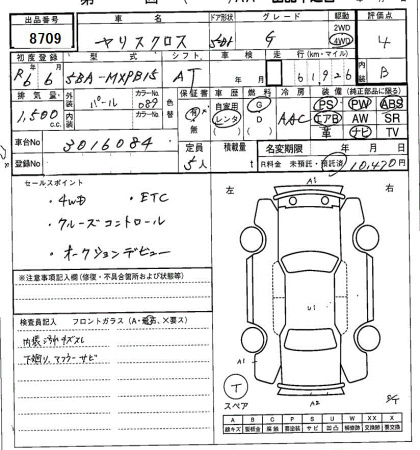 出品番号 車名 ドア形状 グレード 駆動 評価点
8709 ヤリスクロス 5D G 2WD 4WD 4
初度登録 型式 シフト 車検 走行(km・マイル) 内装
R6 6 5BA-MXPB15 AT 年 月 61926 B
排気量 外装 カラーNo. 色替 保証書 車歴 燃料 冷房 装備(純正部品に限る)
1,500 c.c. パール 089 有・無 自家用 レンタ G D AAC PS PW ABS
エアB AW SR
車台No 3016084 革 ナビ TV
登録No 定員 5人 積載量 t 名変期限 年 月 日
R料金 未預託・預託済 10,470円
セールスポイント
・4WD ・ETC
・クルーズコントロール
・オークションデビュー
※注意事項記入欄(修復・不具合箇所および状態等)
検査員記入 フロントガラス(A・飛石、×要ス)
内装汚れキズスレ
下廻り、マフラーサビ
左 右
A1
U1
A1
A2
T
スペア
A B C P S U W X XX
線キズ 板金 腐蝕 要塗装 サビ 凹凸 補修跡 交換跡 要交換